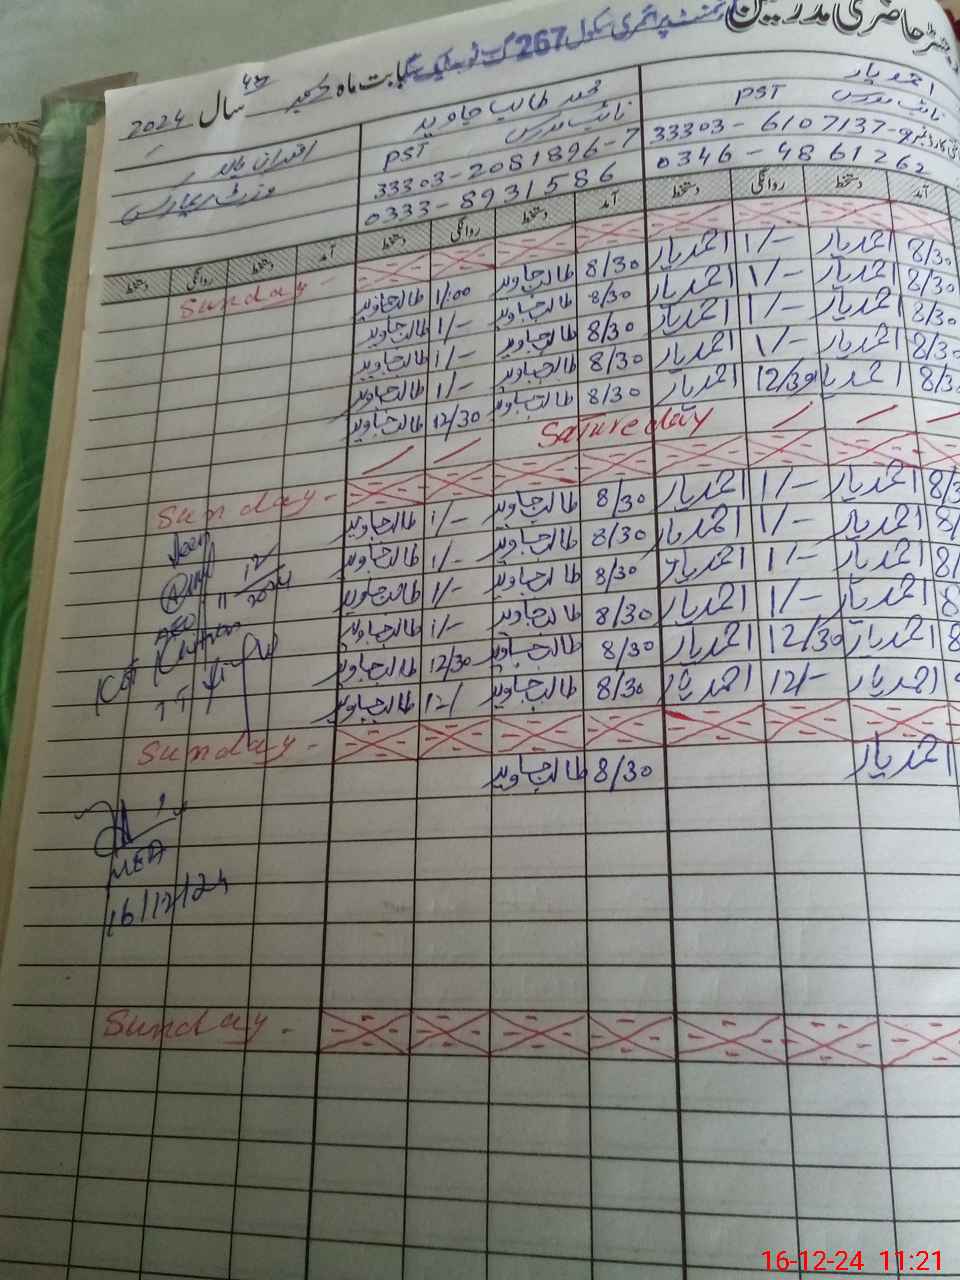 رجسٹر حاضری مدرسین گورنمنٹ پرائمری سکول 267 گ ب بابت ماہ دسمبر سال 2024
احمد یار
نائب مدرس PST
33303-6107137-9
0346-4861262
محمد طالب جاوید
نائب مدرس PST
33303-2081896-7
0333-8931586
آمد دستخط روانگی دستخط آمد دستخط روانگی دستخط آمد دستخط روانگی دستخط
Sunday -
8/30 احمد یار 1/- احمد یار 8/30 طالب جاوید 1/00 طالب جاوید
8/30 احمد یار 1/- احمد یار 8/30 طالب جاوید 1/- طالب جاوید
8/30 احمد یار 1/- احمد یار 8/30 طالب جاوید 1/- طالب جاوید
8/30 احمد یار 1/- احمد یار 8/30 طالب جاوید 1/- طالب جاوید
8/30 احمد یار 12/30 احمد یار 8/30 طالب جاوید 12/30 طالب جاوید
Satureday
Sunday -
8/30 احمد یار 1/- احمد یار 8/30 طالب جاوید 1/- طالب جاوید
8/ احمد یار 1/- احمد یار 8/30 طالب جاوید 1/- طالب جاوید
8/ احمد یار 1/- احمد یار 8/30 طالب جاوید 1/- طالب جاوید
8 احمد یار 1/- احمد یار 8/30 طالب جاوید 1/- طالب جاوید
8 احمد یار 12/30 احمد یار 8/30 طالب جاوید 12/30 طالب جاوید
احمد یار 12/- احمد یار 8/30 طالب جاوید 12/ طالب جاوید
Seen
11 12 2024
AEO
Sunday -
احمد یار 8/30 طالب جاوید
MEA
16/12/24
Sunday -
16-12-24 11:21